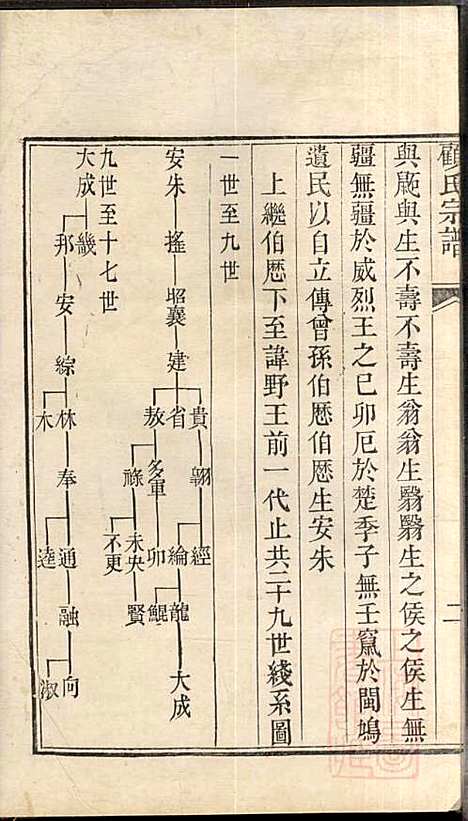 顧氏宗譜
二
與毆與生不壽不壽生翁翁生翳翳生之侯之侯生無
疆無疆於威烈王之巳卯厄於楚季子無壬竄於閩鳩
遺民以自立傳曾孫伯厯伯厯生安朱
上繼伯厯下至諱野王前一代止共二十九世綫系圖
一世至九世
安朱 搖 昭襄 建
貴 翺 經
省 綸 龍 大成
鯤
敖 多軍 卯
祿 未央 賢
不更
九世至十七世
大成 畿
邦 安 綜
林 奉 通 融 向
淑
逵
木